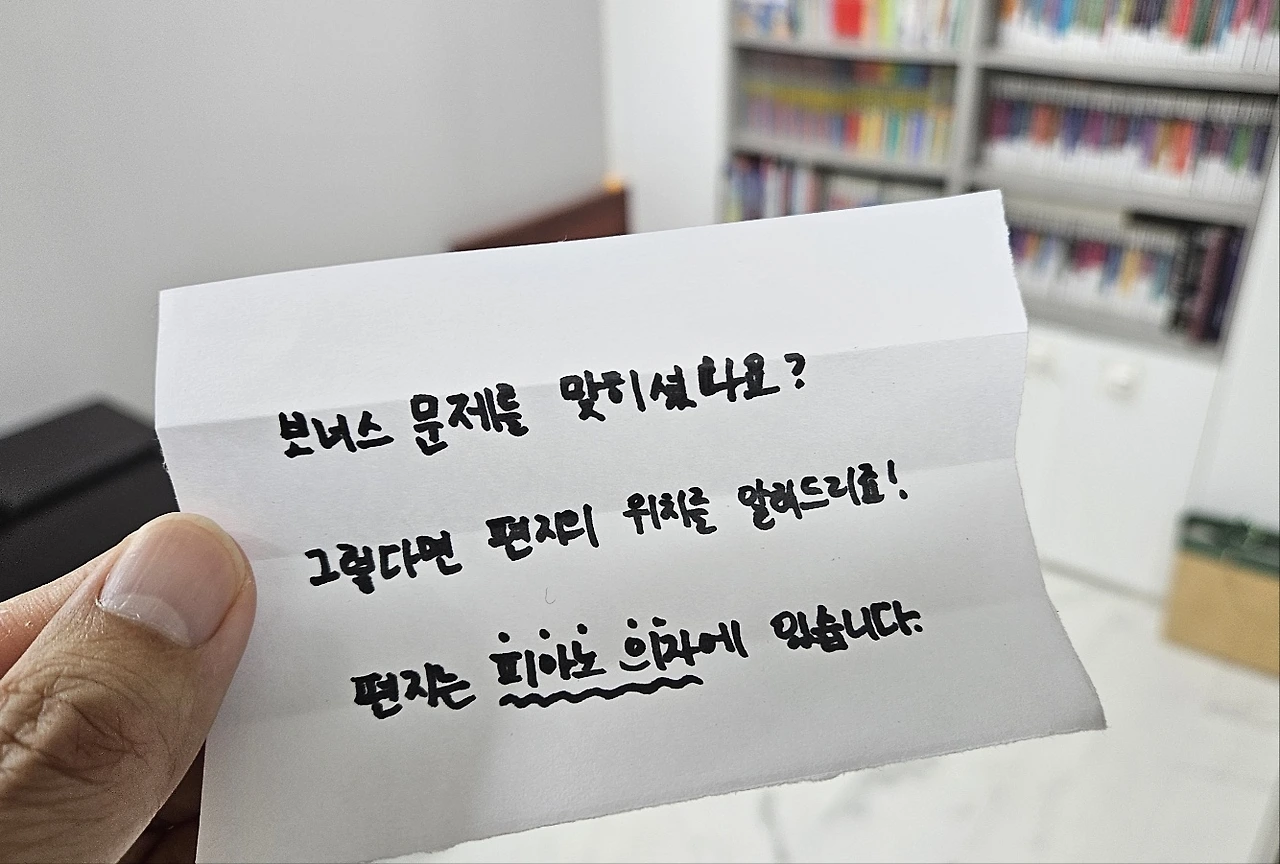 보너스 문제를 맞히셨나요?
그렇다면 편지의 위치를 알려드리죠!
편지는 피아노 의자에 있습니다.